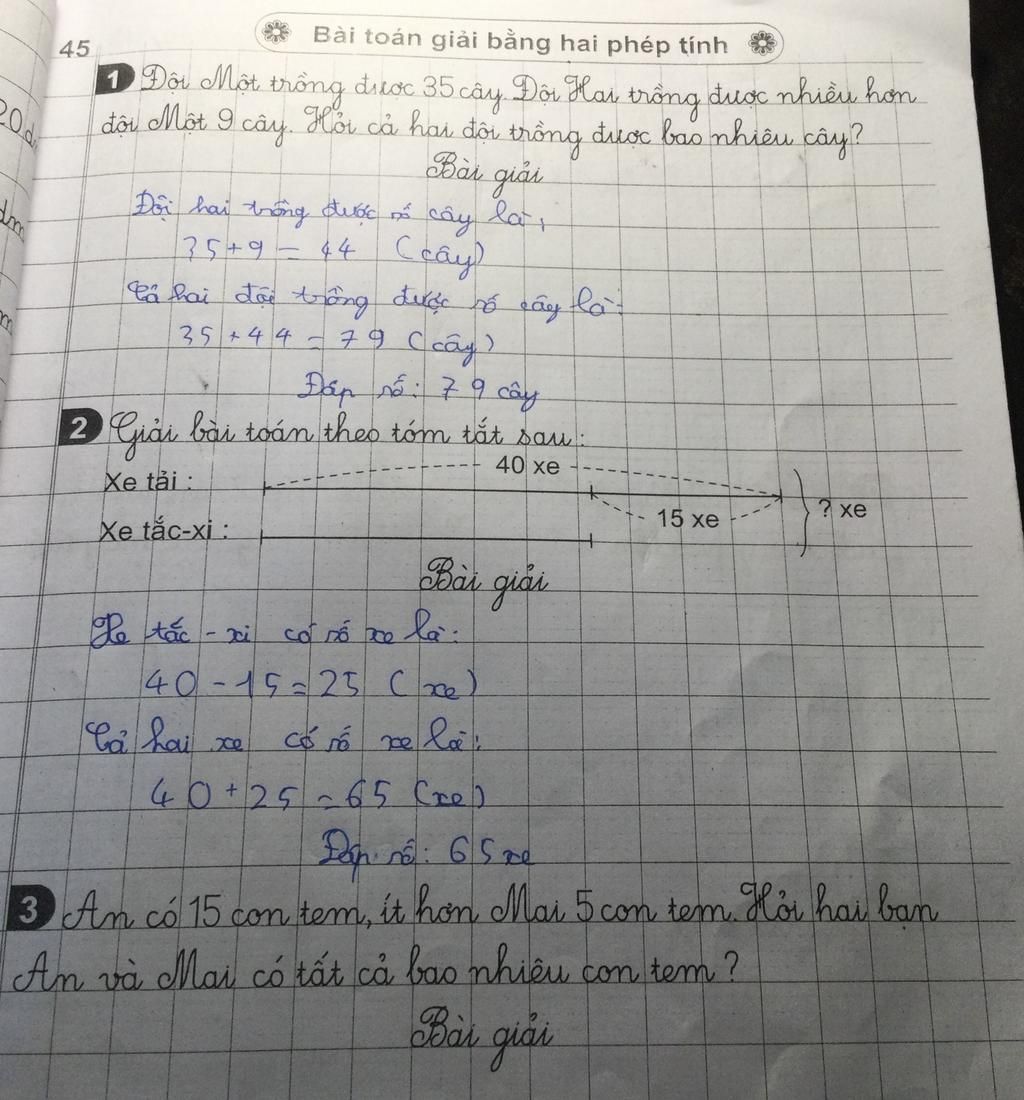 45
Bài toán giải bằng hai phép tính
1 Đội Một trồng được 35 cây. Đội Hai trồng được nhiều hơn
đội Một 9 cây. Hỏi cả hai đội trồng được bao nhiêu cây?
Bài giải
Đội hai trồng được số cây là:
35 + 9 = 44 (cây)
Cả hai đội trồng được số cây là:
35 + 44 = 79 (cây)
Đáp số: 79 cây
2 Giải bài toán theo tóm tắt sau:
40 xe
Xe tải :
15 xe
? xe
Xe tắc-xi :
Bài giải
Xe tắc - xi có số xe là:
40 - 15 = 25 (xe)
Cả hai xe có số xe là:
40 + 25 = 65 (xe)
Đáp số: 65 xe
3 An có 15 con tem, ít hơn Mai 5 con tem. Hỏi hai bạn
An và Mai có tất cả bao nhiêu con tem?
Bài giải